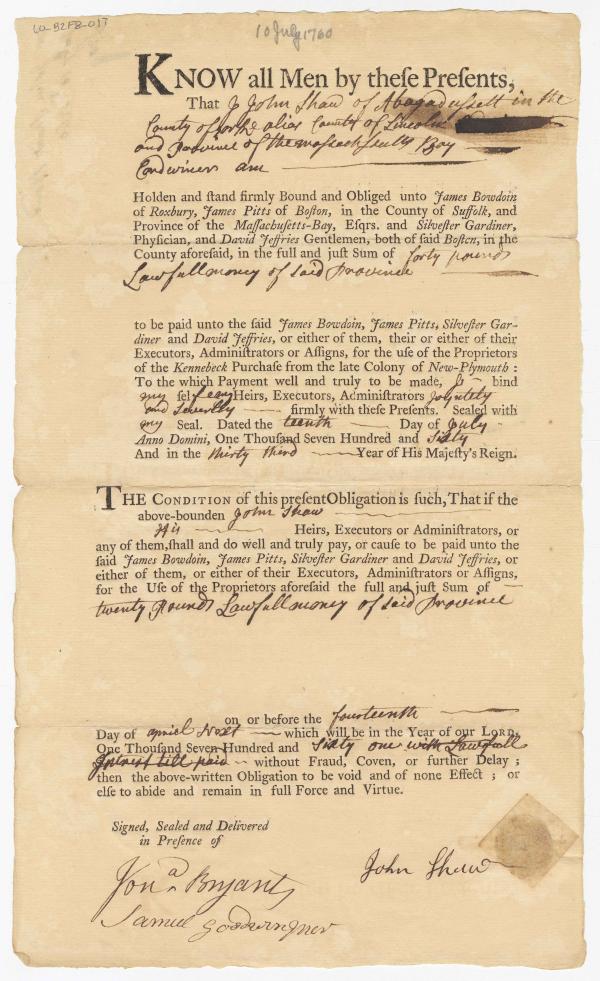 10 July 1760
KNOW all Men by theſe Preſents,
That I John Shaw of Abagadussett in the
County of York alias County of Lincoln
and Province of the Massachsetts Bay
Cordwiner am
Holden and ſtand firmly Bound and Obliged unto James Bowdoin
of Roxbury, James Pitts of Boſton, in the County of Suffolk, and
Province of the Maſſachuſetts-Bay, Eſqrs. and Silveſter Gardiner,
Phyſician, and David Jeffries Gentlemen, both of ſaid Boſton, in the
County aforeſaid, in the full and juſt Sum of forty pounds
Lawfull money of said Province
to be paid unto the ſaid James Bowdoin, James Pitts, Silveſter Gar-
diner and David Jeffries, or either of them, their or either of their
Executors, Adminiſtrators or Aſſigns, for the uſe of the Proprietors
of the Kennebeck Purchaſe from the late Colony of New-Plymouth :
To the which Payment well and truly to be made, I bind
my ſelf my Heirs, Executors, Adminiſtrators Joyntely
and Severelly firmly with theſe Preſents. Sealed with
my Seal. Dated the teenth Day of July
Anno Domini, One Thouſand Seven Hundred and Sixty
And in the thirty third Year of His Majeſty's Reign.
THE CONDITION of this preſent Obligation is ſuch, That if the
above-bounden John Shaw
His Heirs, Executors or Adminiſtrators, or
any of them, ſhall and do well and truly pay, or cauſe to be paid unto the
ſaid James Bowdoin, James Pitts, Silveſter Gardiner and David Jeffries, or
either of them, or either of their Executors, Adminiſtrators or Aſſigns,
for the Uſe of the Proprietors aforeſaid the full and juſt Sum of
twenty Pounds Lawfull money of said Province
on or before the fourteenth
Day of apriel Next which will be in the Year of our LORD,
One Thouſand Seven Hundred and Sixty one with Lawfull
Intrest till paid without Fraud, Coven, or further Delay ;
then the above-written Obligation to be void and of none Effect ; or
elſe to abide and remain in full Force and Virtue.
Signed, Sealed and Delivered
in Preſence of
John Shaw
Jona Bryant
Samuel Goodwin Juner